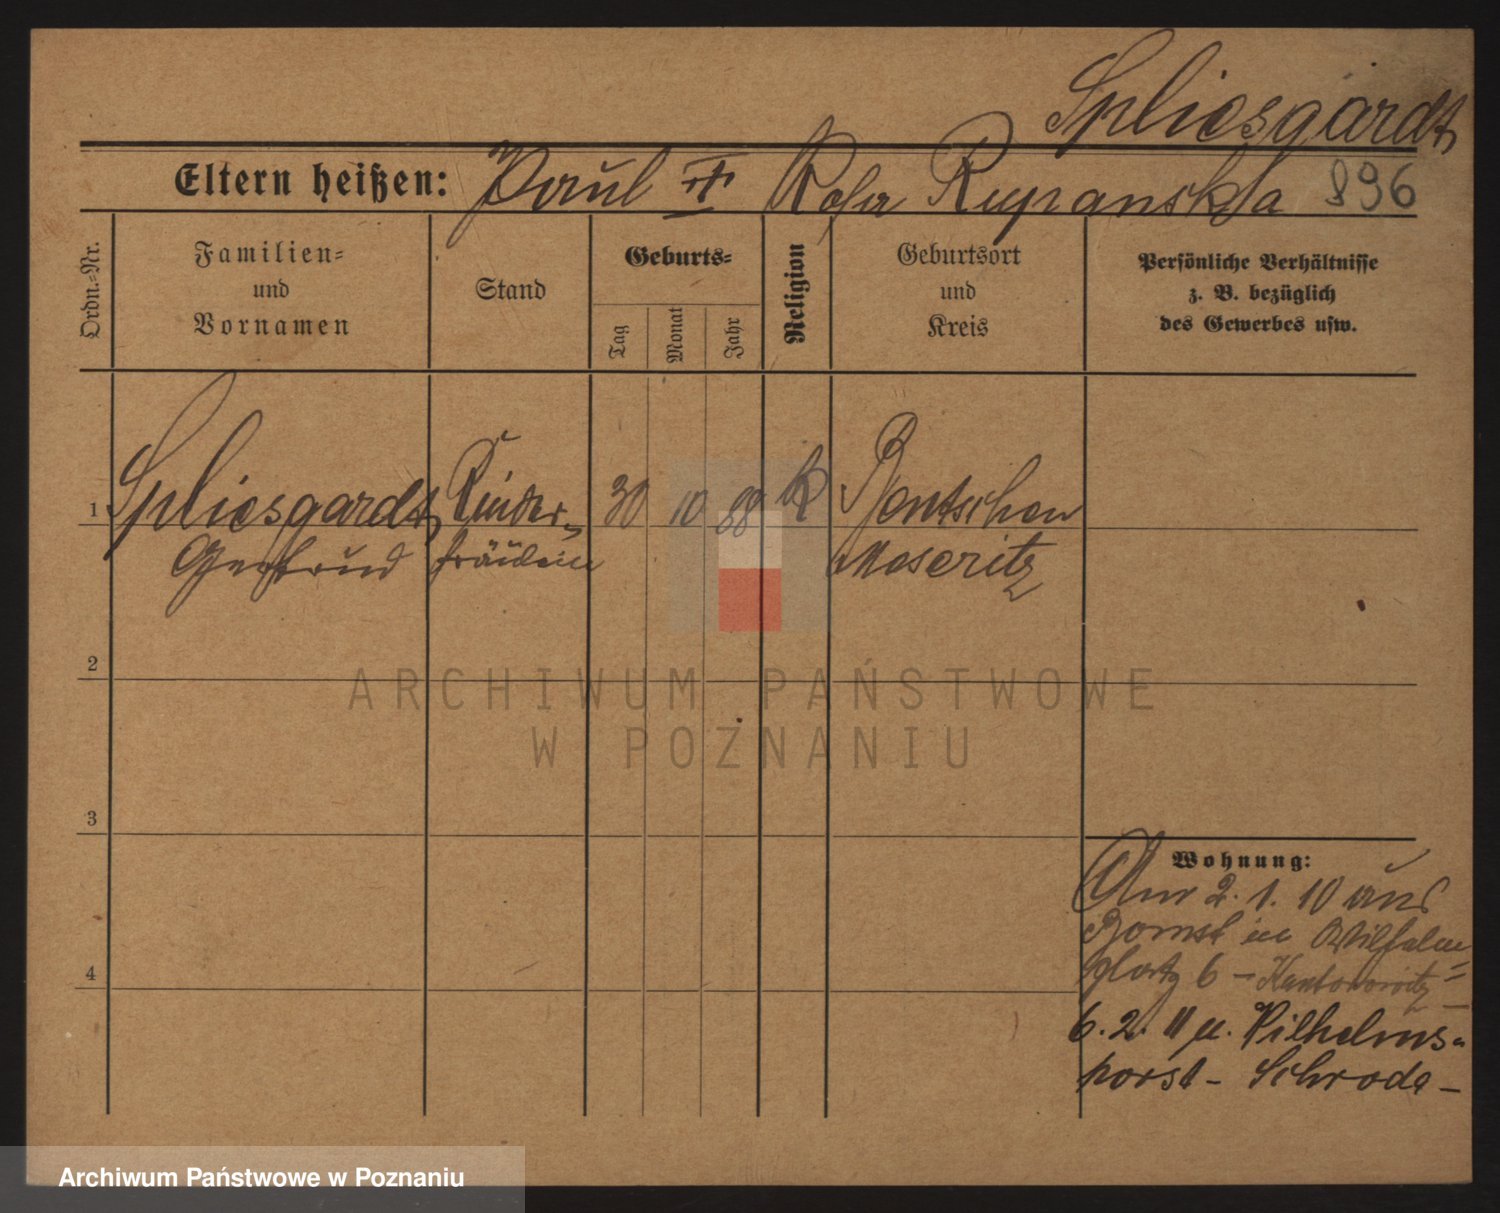 Spliesgardt
Eltern heißen: Paul Rosa Rupanska 896
Ordn.=Nr.
Familien=
und
Vornamen
Stand
Geburts=
Tag
Monat
Jahr
Religion
Geburtsort
und
Kreis
Persönliche Verhältnisse
z. B. bezüglich
des Gewerbes usw.
1 Spliesgardt Kinder= 30 10 88 k Bentschen
Gertrud fräulein Meseritz
2
ARCHIWUM PAŃSTWOWE
W POZNANIU
3
Wohnung:
Am 2. 1. 10 aus
Bomst in Wilhelm=
platz 6 – Kantorowitz –
6. 2. 11 n. Wilhelms=
horst – Schroda –
4
Archiwum Państwowe w Poznaniu